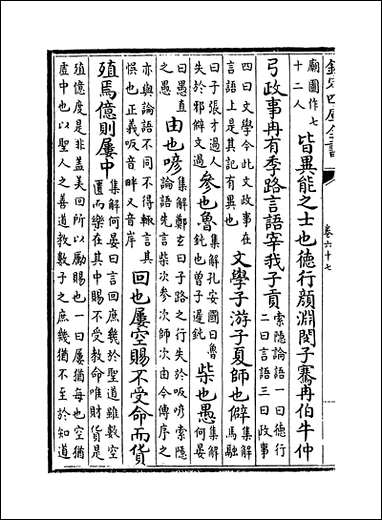 欽定四庫全書
卷六十七
廟圖作七
十二人
皆異能之士也德行顏淵閔子騫冉伯牛仲
弓政事冉有季路言語宰我子貢
索隱論語一曰德行
二曰言語三曰政事
四曰文學今此文政事在
言語上是其記有異也
文學子游子夏師也僻
集解
馬融
曰子張才過人
失於邪僻文過
參也魯
集解孔安國曰魯
鈍也曾子遲鈍
柴也愚
集解
何晏
曰愚直
之愚
由也喭
集解鄭玄曰子路之行失於吸喭索隱
論語先言柴次參次師次由今傳序之
亦與論語不同不得輒言其
悮也正義吸音畔又音岸
回也屢空賜不受命而貨
殖焉億則屢中
集解何晏曰言回庶幾於聖道雖數空
匱而樂在其中賜不受教命唯財貨是
殖億度是非蓋美回所以勵賜也一曰屢猶每也空猶
虛中也以聖人之善道教數子之庶幾猶不至於知道